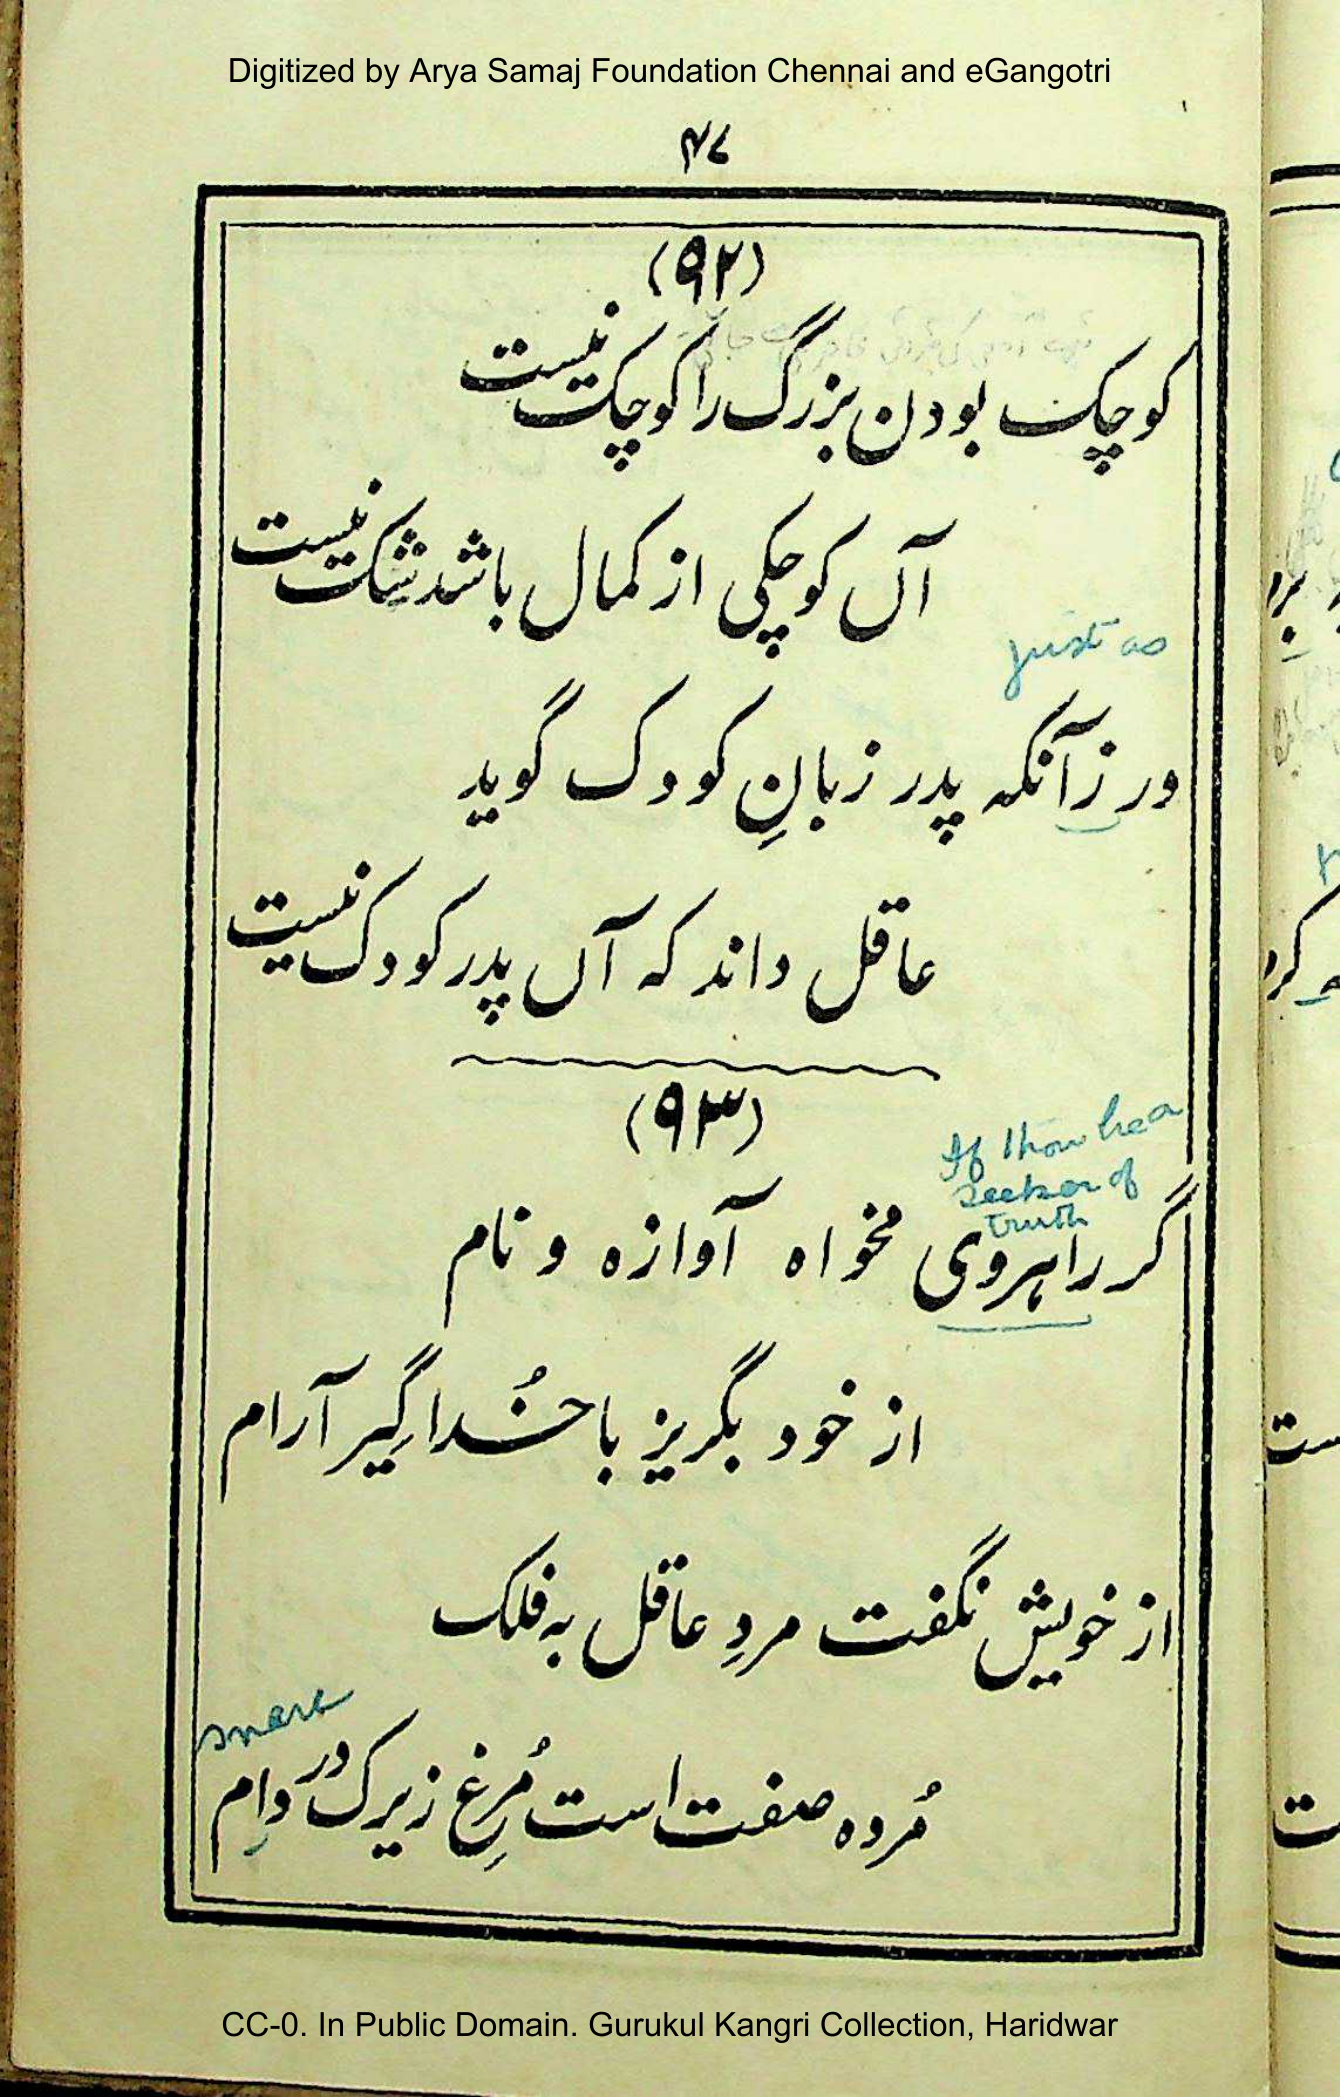 Digitized by Arya Samaj Foundation Chennai and eGangotri
۴۷
(۹۲)
کوچک بودن بزرگ را کوچک نیست
آں کوچکی از کمال باشد شک نیست
just as
ور زآنکہ پدر زبانِ کودک گوید
عاقل داند کہ آں پدر کودک نیست
(۹۳)
If thou be a
seeker of
truth
گر راہروی مخواہ آوازہ و نام
از خود بگریز با خُدا گِیر آرام
از خویش نگفت مردِ عاقل بہ فلک
snare
مُردہ صفت است مُرغِ زیرک در دام
CC-0. In Public Domain. Gurukul Kangri Collection, Haridwar